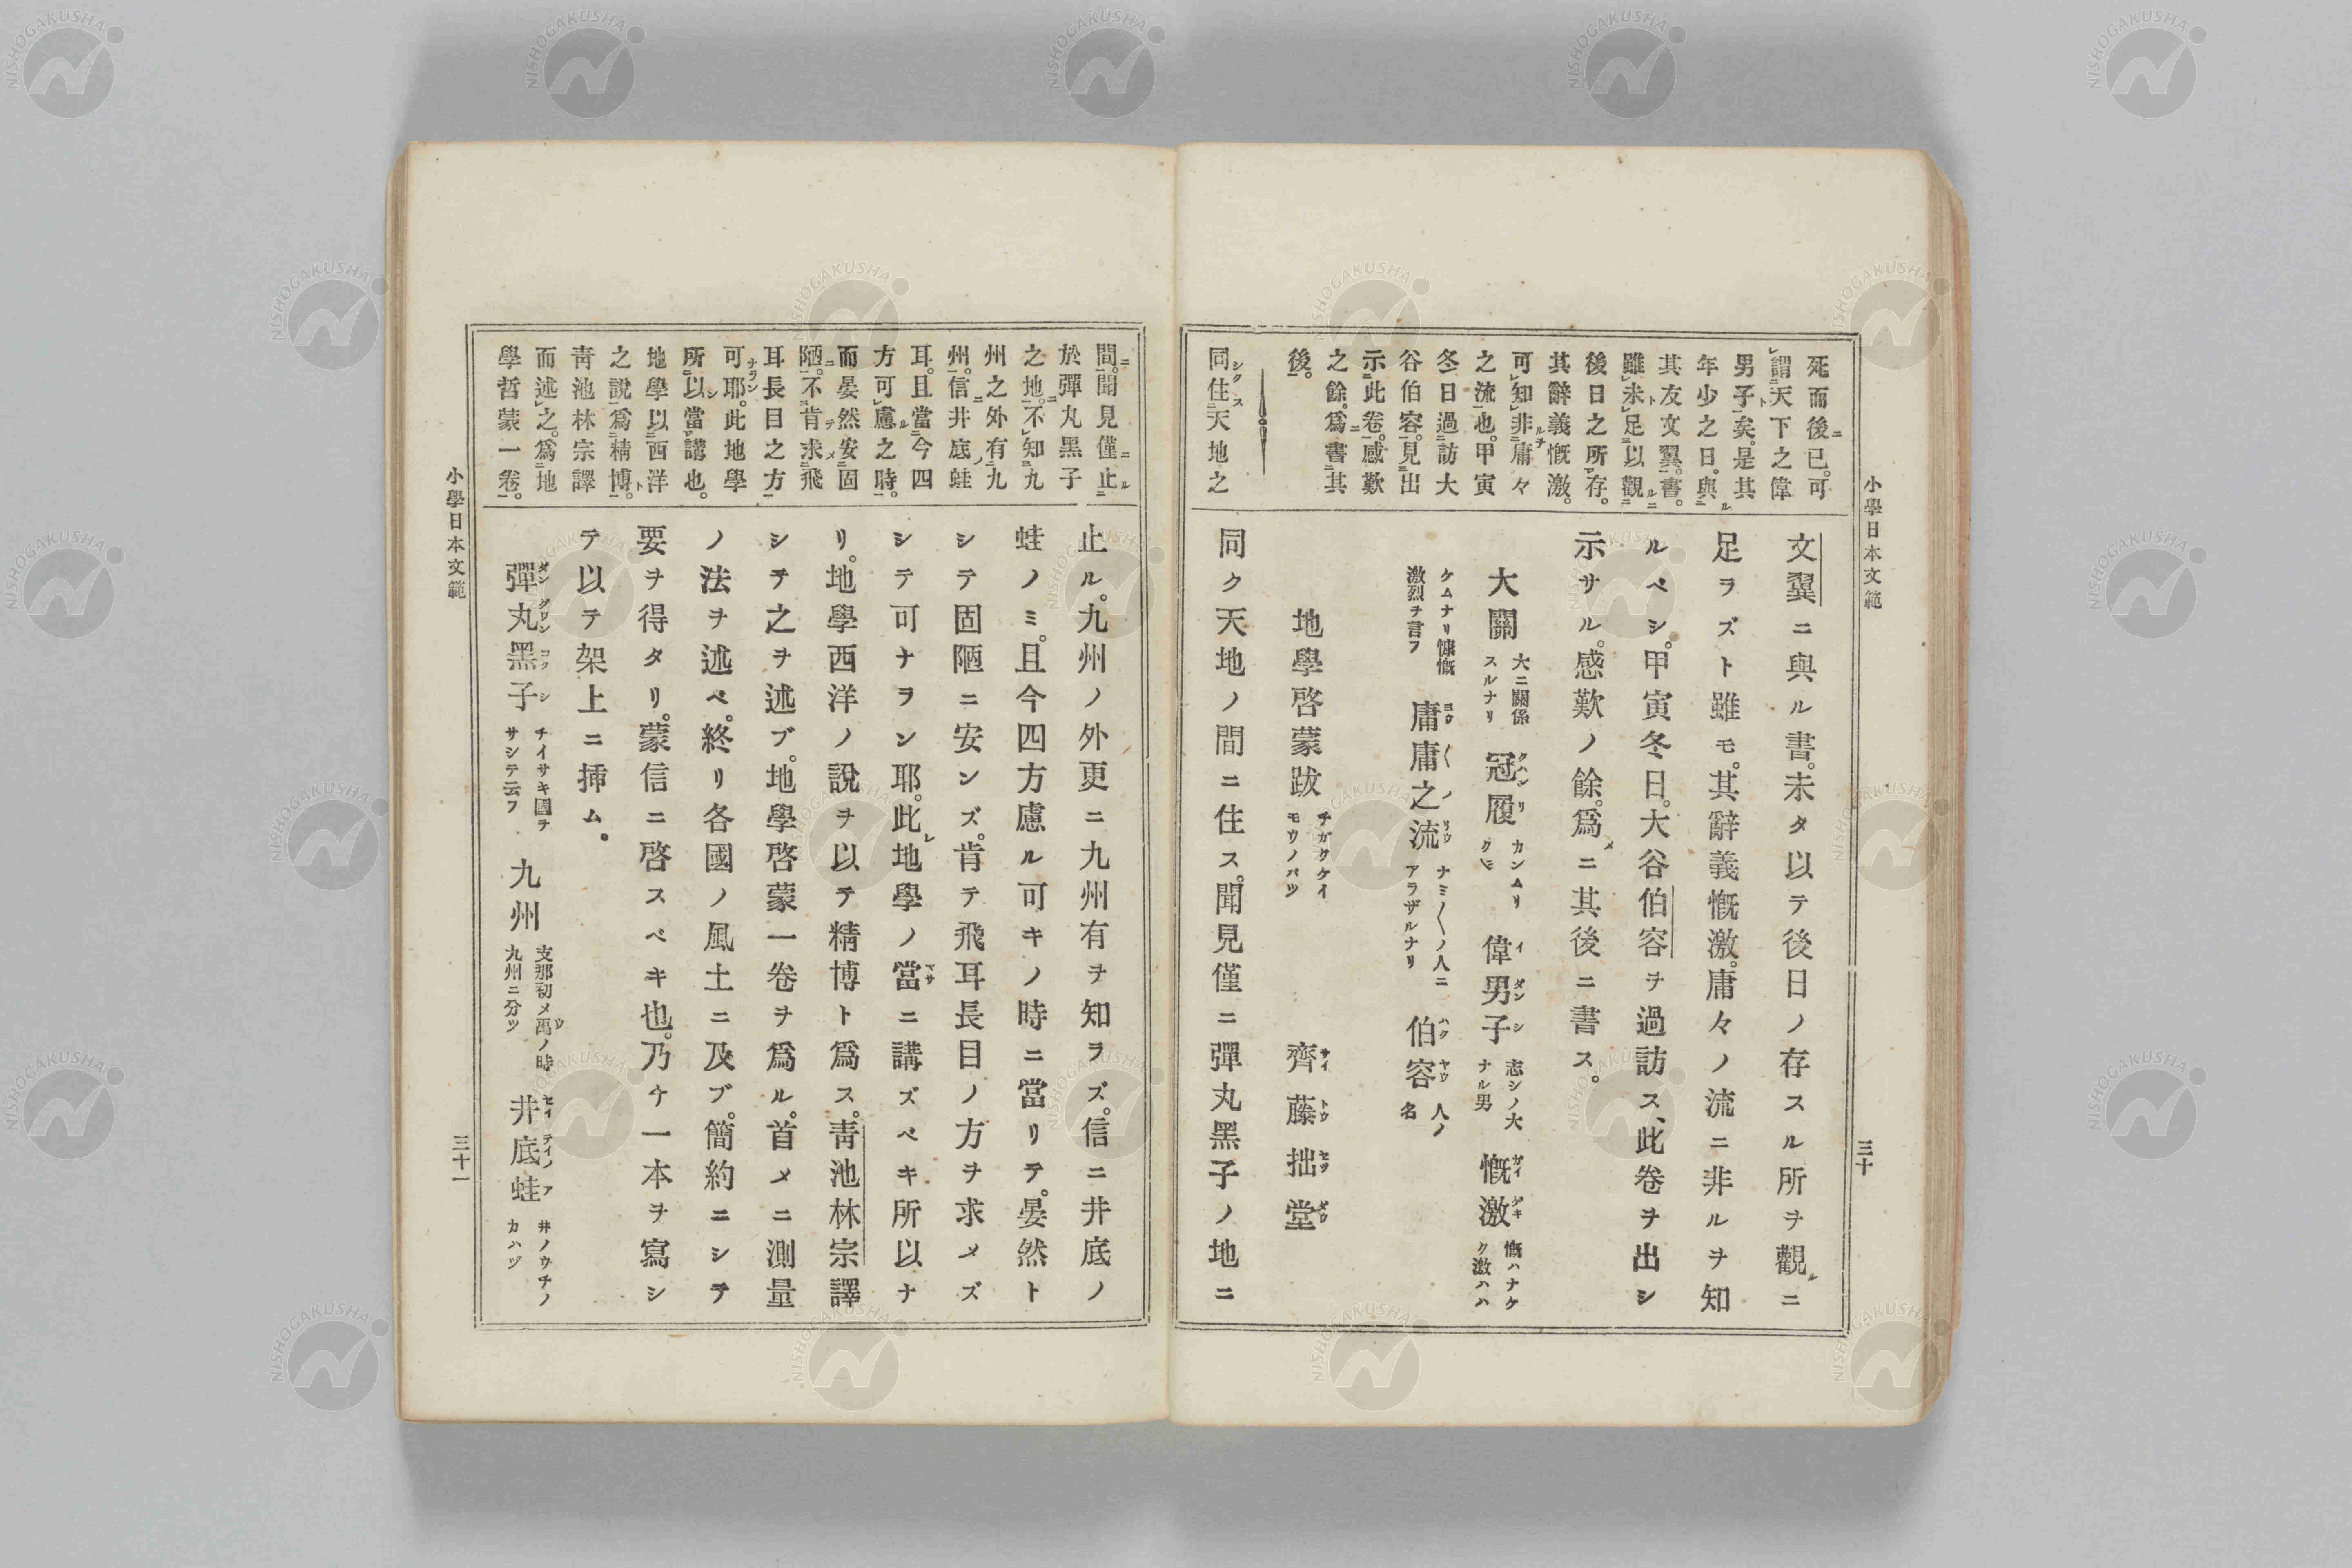 小學日本文範
三十
死而後已。可
謂天下之偉
男子矣。是其
年少之日。與
其友文翼書。
雖未足以觀
後日之所存。
其辭義慨激。
可知非庸々
之流也。甲寅
冬日過訪大
谷伯容。見出
示此卷。感歎
之餘。爲書其
後。
同住天地之
文翼ニ與ル書。未タ以テ後日ノ存スル所ヲ觀ルニ
足ラズト雖モ。其辭義慨激。庸々ノ流ニ非ルヲ知
ルベシ。甲寅冬日。大谷伯容ヲ過訪ス、此卷ヲ出シ
示サル。感歎ノ餘。爲メニ其後ニ書ス。
大關 大ニ關係スルナリ 冠履 カンムリクツ 偉男子 志シノ大ナル男 慨激 慨ハナケク激ハハ
ケムナリ慷慨激烈ヲ書フ 庸庸之流 ナミ〱ノ人ニアラザルナリ 伯容 人ノ名
地學啓蒙跋 チガクケイモウノバツ 齊藤拙堂
同ク天地ノ間ニ住ス。聞見僅ニ彈丸黑子ノ地ニ
間。聞見僅止
於彈丸黑子
之地。不知九
州之外有九
州。信井底蛙
耳。且當今四
方可慮之時。
而晏然安固
陋。不肯求飛
耳長目之方
可耶。此地學
所以當講也。
地學以西洋
之說爲精博。
靑池林宗譯
而述之。爲地
學哲蒙一卷。
止ル。九州ノ外更ニ九州有ヲ知ラズ。信ニ井底ノ
蛙ノミ。且今四方慮ル可キノ時ニ當リテ。晏然ト
シテ固陋ニ安ンズ。肯テ飛耳長目ノ方ヲ求メズ
シテ可ナラン耶。此レ地學ノ當ニ講ズベキ所以ナ
リ。地學西洋ノ說ヲ以テ精博ト爲ス。靑池林宗譯
シテ之ヲ述ブ。地學啓蒙一卷ヲ爲ル。首メニ測量
ノ法ヲ述ベ。終リ各國ノ風土ニ及ブ。簡約ニシテ
要ヲ得タリ。蒙信ニ啓スベキ也。乃ケ一本ヲ寫シ
テ以テ架上ニ揷ム。
彈丸黑子 チイサキ國ヲサシテ云フ 九州 支那初メ禹ノ時九州ニ分ツ 井底蛙 井ノウチノカハヅ
小學日本文範
三十一